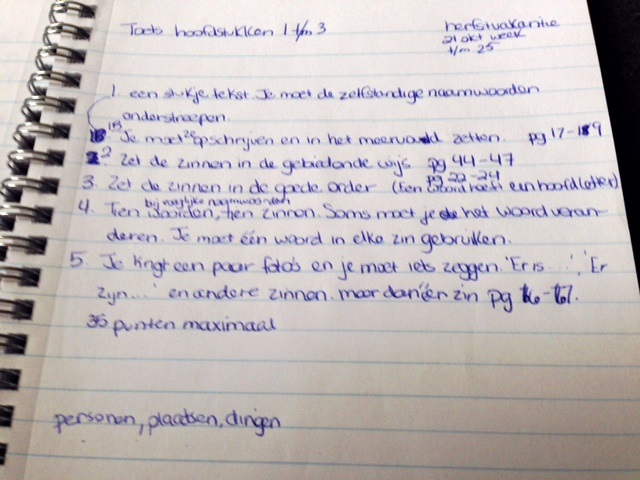 Toets hoofdstukken 1 t/m 3
herfstvakantie
21 okt week
t/m 25
1. een stukje tekst. Je moet de zelfstandige naamwoorden
onderstreepen
1B Je moet ze opschrijven en in het meervoud zetten. pg 17-19
2 Zet de zinnen in de gebiedende wijs pg 44-47
3. Zet de zinnen in de goede order (Een woord heeft een hoofdletter) pg 22-24
bijvoeglijke naamwoorden
4. Tien woorden, tien zinnen. Soms moet je het woord veran-
deren. Je moet één woord in elke zin gebruiken.
5 Je krijgt een paar foto's en je moet iets zeggen. 'Er is...', 'Er
zijn...' en andere zinnen. maar dan één zin pg 16-17.
35 punten maximaal
personen, plaatsen, dingen